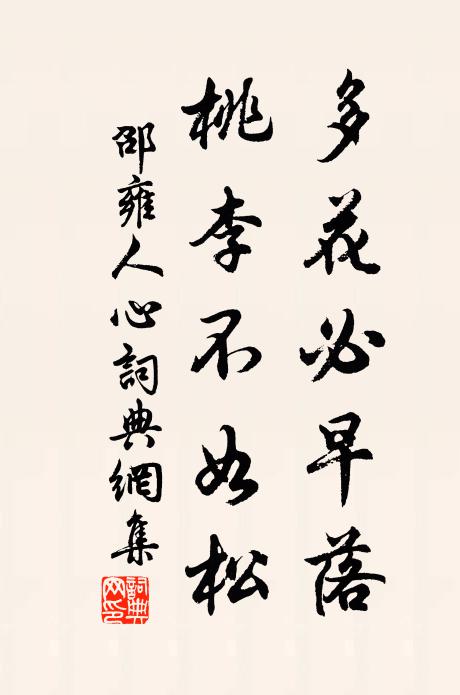 多花必早落
桃李不如松
邵雍人心詞典網集
詞典网印